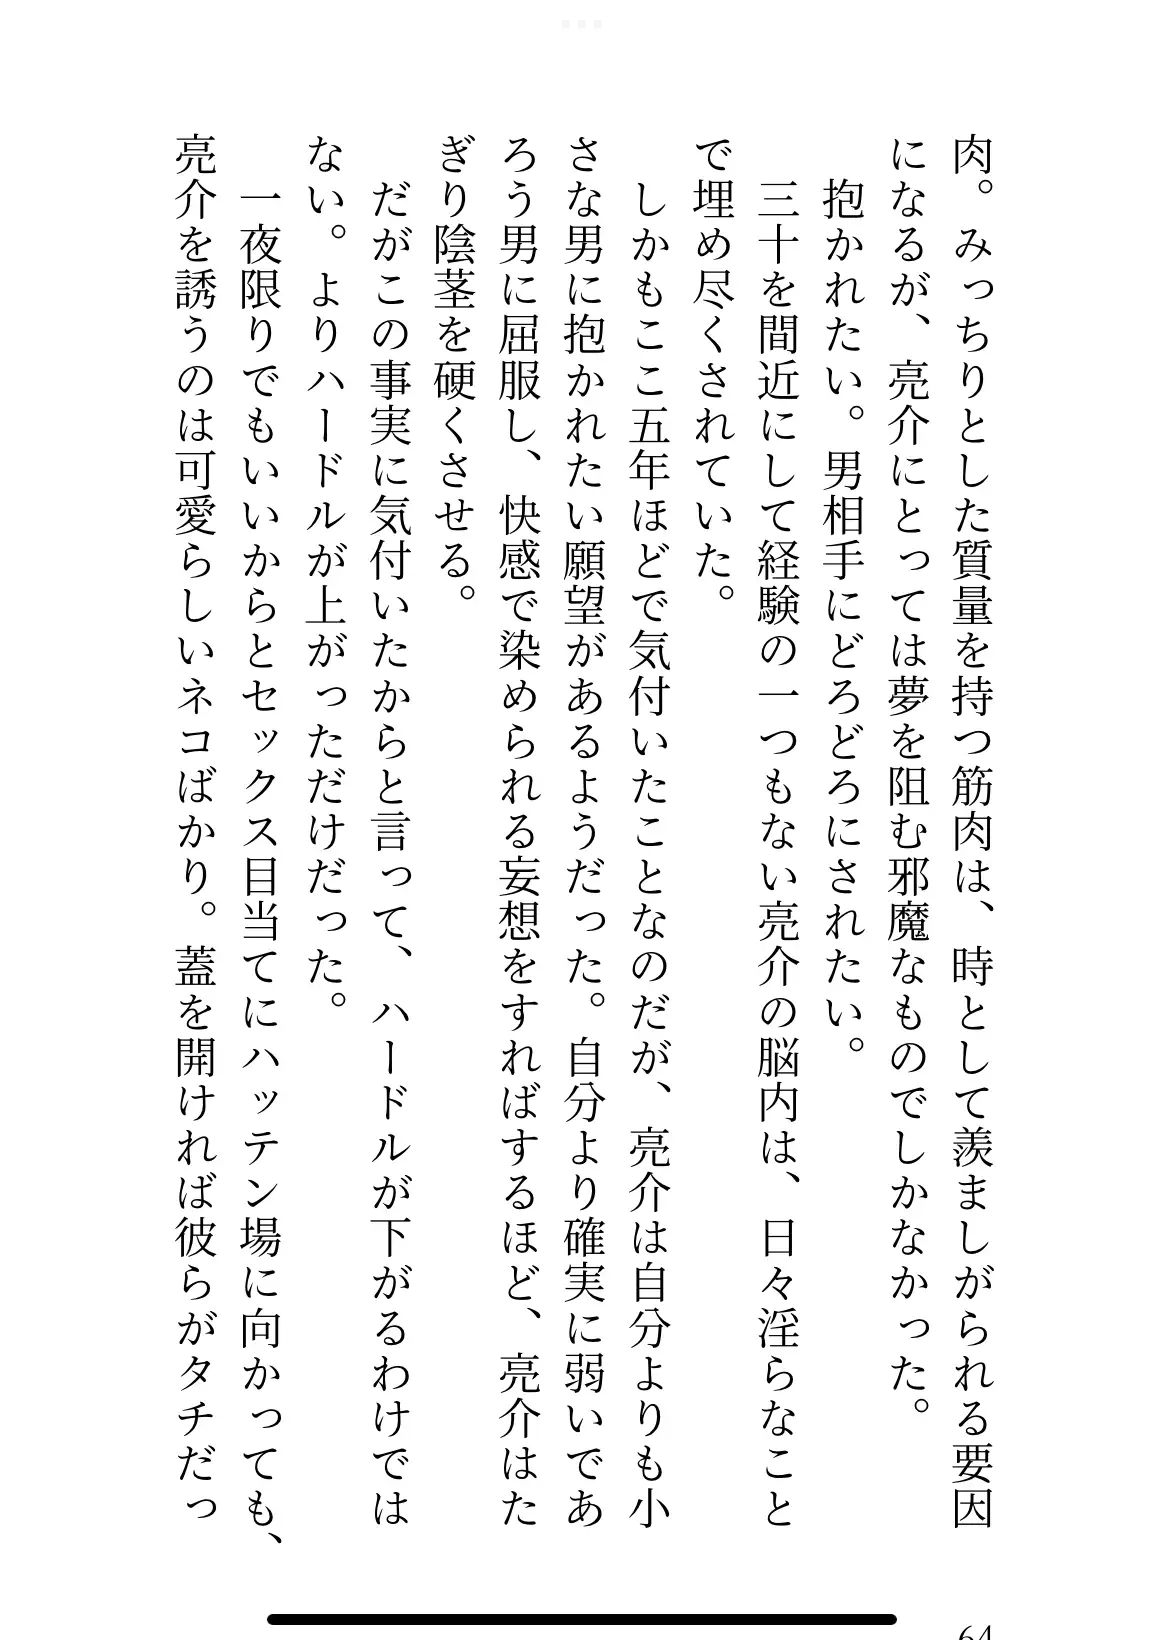 肉。みっちりとした質量を持つ筋肉は、時として羨ましがられる要因
になるが、亮介にとっては夢を阻む邪魔なものでしかなかった。
抱かれたい。男相手にどろどろにされたい。
三十を間近にして経験の一つもない亮介の脳内は、日々淫らなこと
で埋め尽くされていた。
しかもここ五年ほどで気付いたことなのだが、亮介は自分よりも小
さな男に抱かれたい願望があるようだった。自分より確実に弱いであ
ろう男に屈服し、快感で染められる妄想をすればするほど、亮介はた
ぎり陰茎を硬くさせる。
だがこの事実に気付いたからと言って、ハードルが下がるわけでは
ない。よりハードルが上がっただけだった。
一夜限りでもいいからとセックス目当てにハッテン場に向かっても、
亮介を誘うのは可愛らしいネコばかり。蓋を開ければ彼らがタチだっ
64